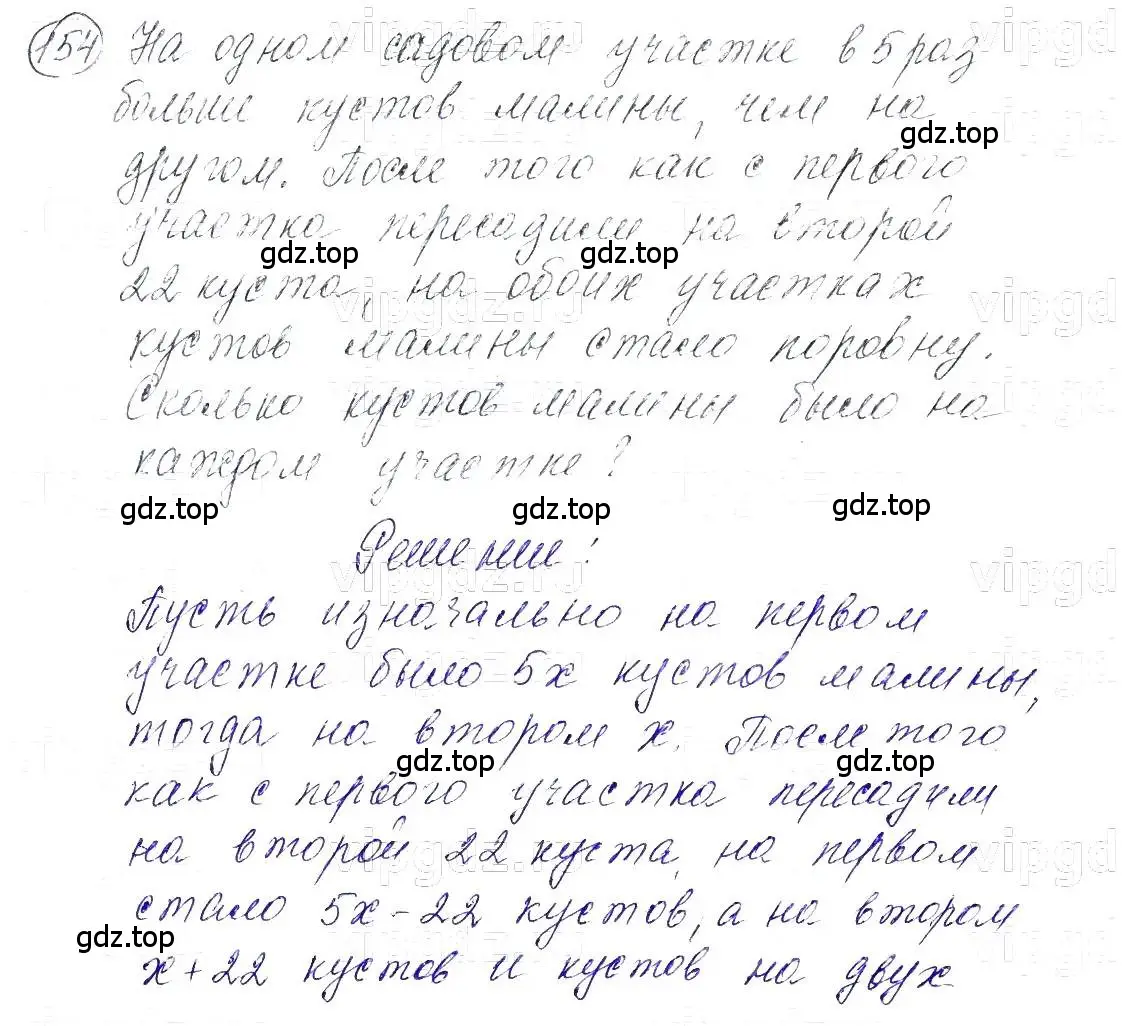 154 На одном садовом участке в 5 раз
больше кустов малины, чем на
gdz.top
другом. После того как с первого
участка пересадили на второй
gdz.top gdz.top
22 куста, на обоих участках
vipgdz.ru vipgd
кустов малины стало поровну.
Сколько кустов малины было на
каждом участке?
gdz.top gdz.top gdz.top
Решение:
vipgdz.ru vipgd
Пусть изначально на первом
участке было 5x кустов малины,
тогда на втором x. После того
gdz.top gdz.top
как с первого участка пересадили
на второй 22 куста, на первом
стало 5x-22 кустов, а на втором
gdz.top
x+22 кустов и кустов на двух